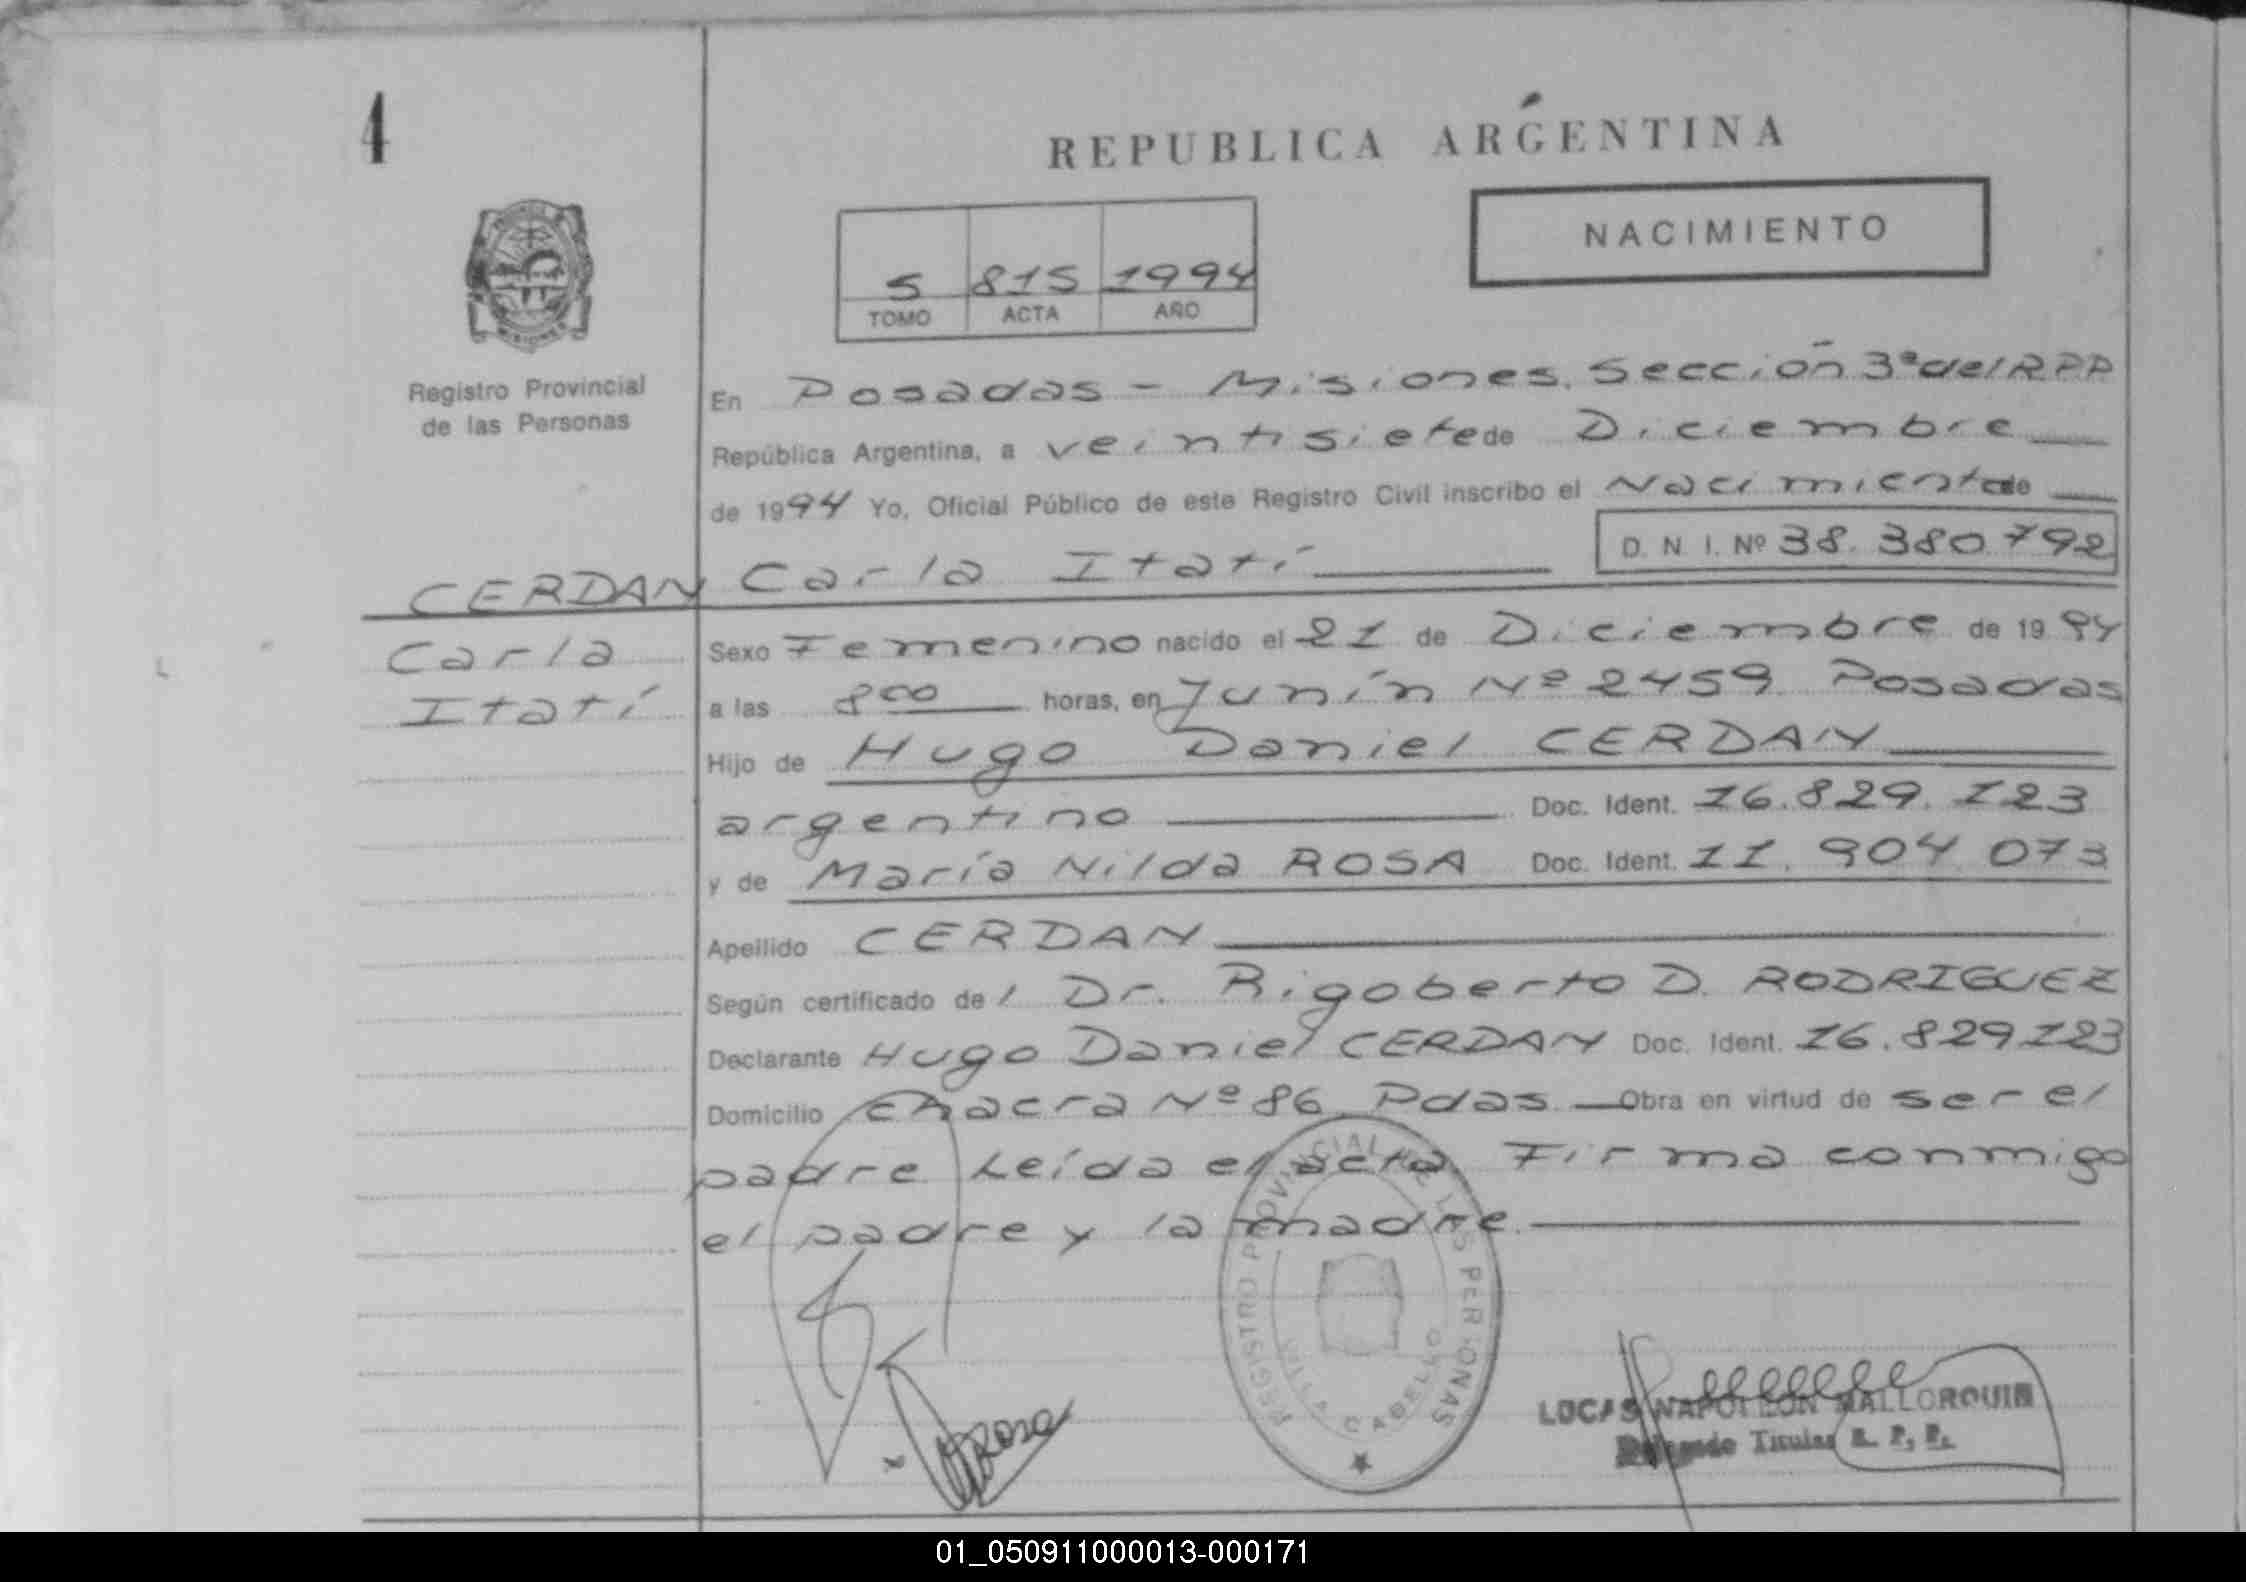 4
REPUBLICA ARGENTINA
NACIMIENTO
5 815 1994
TOMO ACTA AÑO
MISIONES
Registro Provincial
de las Personas
En Posadas - Misiones. Sección 3ª del R P P
República Argentina, a veintisiete de Diciembre
de 1994 Yo, Oficial Público de este Registro Civil inscribo el Nacimiento de
D. N. I. Nº 38.380.792
CERDAN Carla Itatí
Carla
Itatí
Sexo Femenino nacido el 21 de Diciembre de 1994
a las 8 00 horas, en Junín Nº 2459 Posadas
Hijo de Hugo Daniel CERDAN
argentino Doc. Ident. 16.829.123
y de María Nilda ROSA Doc. Ident. 11.904.073
Apellido CERDAN
Según certificado del Dr. Rigoberto D. RODRIGUEZ
Declarante Hugo Daniel CERDAN Doc. Ident. 16.829123
Domicilio Chacra Nº 86 Pdas. Obra en virtud de ser el
padre Leída el acta, Firma conmigo
el padre y la madre.
REGISTRO PROVINCIAL DE LAS PERSONAS
VILLA CABELLO
Rosa
LUCAS NAPOLEON MALLORQUIN
Delegado Titular R. P. P.
01_050911000013-000171